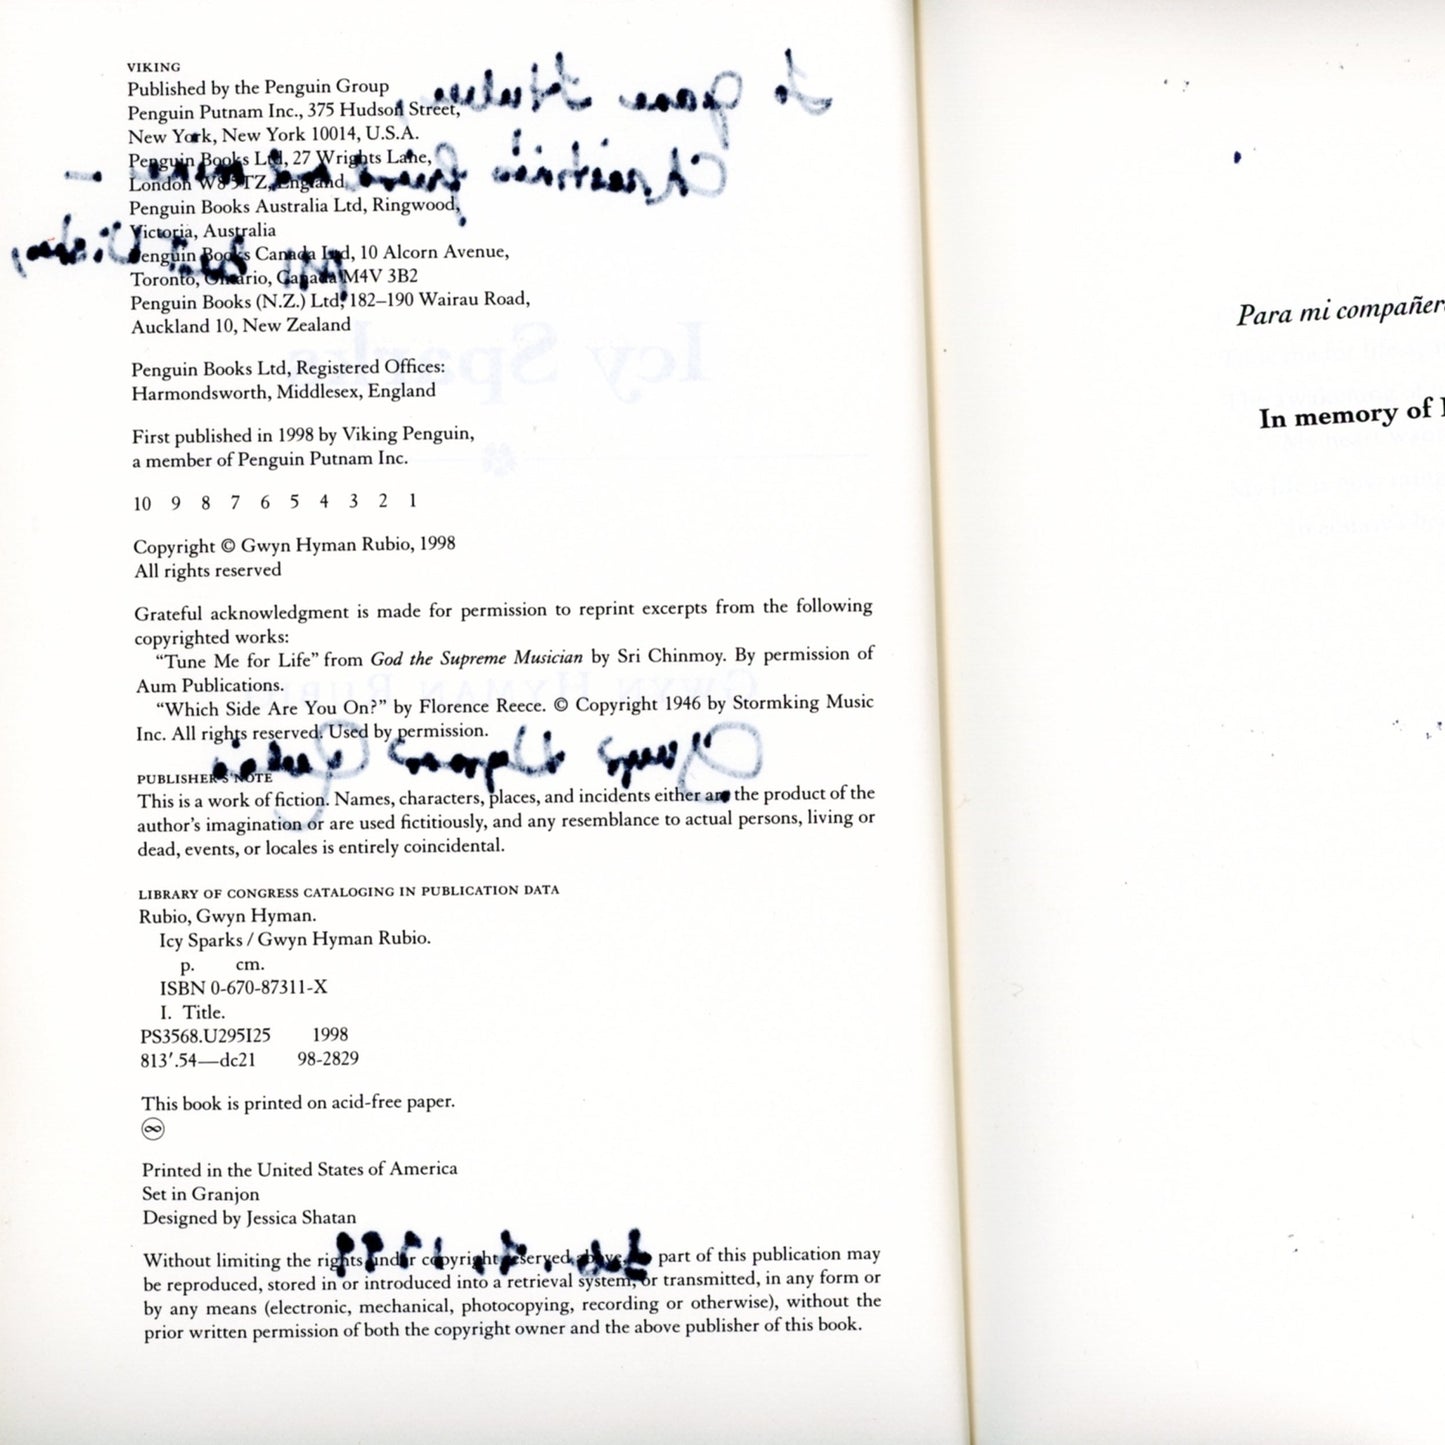 VIKING
Published by the Penguin Group
Penguin Putnam Inc., 375 Hudson Street,
New York, New York 10014, U.S.A.
Penguin Books Ltd, 27 Wrights Lane,
London W8 5TZ, England
Penguin Books Australia Ltd, Ringwood,
Victoria, Australia
Penguin Books Canada Ltd, 10 Alcorn Avenue,
Toronto, Ontario, Canada M4V 3B2
Penguin Books (N.Z.) Ltd, 182–190 Wairau Road,
Auckland 10, New Zealand
Penguin Books Ltd, Registered Offices:
Harmondsworth, Middlesex, England
First published in 1998 by Viking Penguin,
a member of Penguin Putnam Inc.
10 9 8 7 6 5 4 3 2 1
Copyright © Gwyn Hyman Rubio, 1998
All rights reserved
Grateful acknowledgment is made for permission to reprint excerpts from the following
copyrighted works:
“Tune Me for Life” from God the Supreme Musician by Sri Chinmoy. By permission of
Aum Publications.
“Which Side Are You On?” by Florence Reece. © Copyright 1946 by Stormking Music
Inc. All rights reserved. Used by permission.
PUBLISHER'S NOTE
This is a work of fiction. Names, characters, places, and incidents either are the product of the
author's imagination or are used fictitiously, and any resemblance to actual persons, living or
dead, events, or locales is entirely coincidental.
LIBRARY OF CONGRESS CATALOGING IN PUBLICATION DATA
Rubio, Gwyn Hyman.
Icy Sparks / Gwyn Hyman Rubio.
p. cm.
ISBN 0-670-87311-X
I. Title.
PS3568.U295I25 1998
813′.54—dc21 98-2829
This book is printed on acid-free paper.
∞
Printed in the United States of America
Set in Granjon
Designed by Jessica Shatan
Without limiting the rights under copyright reserved above, no part of this publication may
be reproduced, stored in or introduced into a retrieval system, or transmitted, in any form or
by any means (electronic, mechanical, photocopying, recording or otherwise), without the
prior written permission of both the copyright owner and the above publisher of this book.
Para mi compañer
In memory of